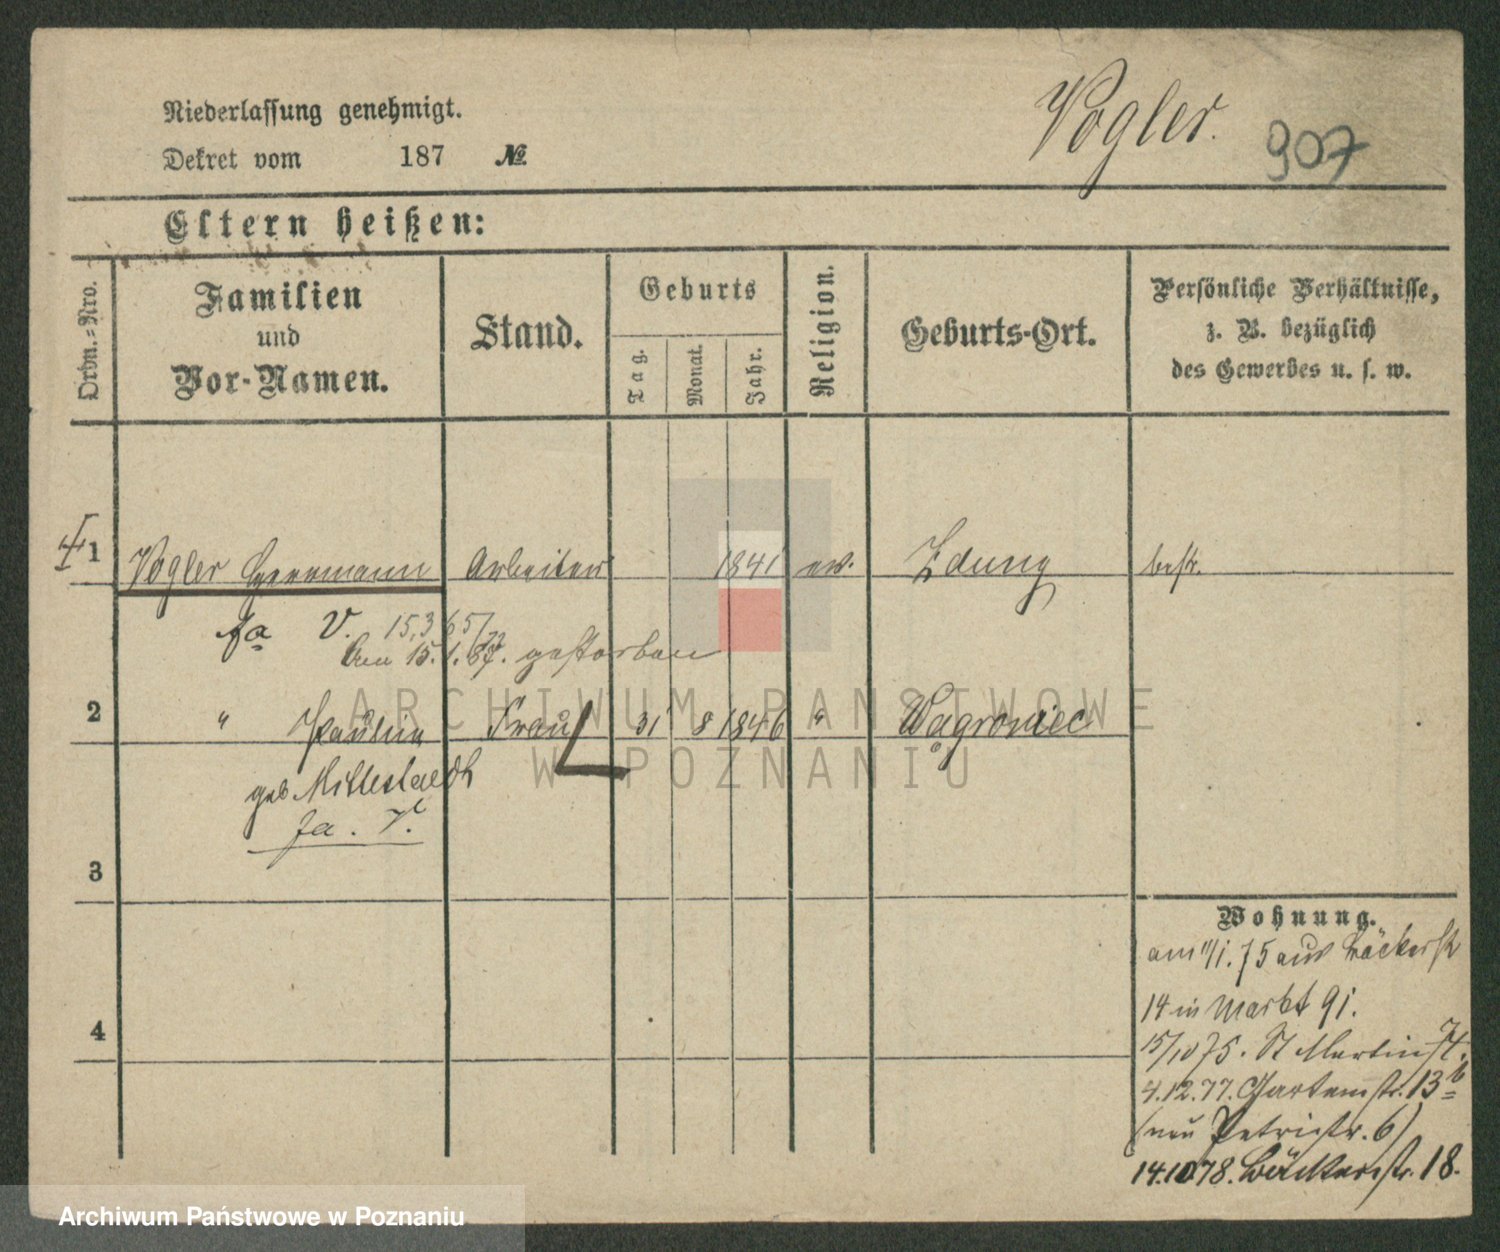 Niederlassung genehmigt.
Vogler.
907
Dekret vom 187 №
Eltern heißen:
Ordn.-Nro.
Familien
und
Vor-Namen.
Stand.
Geburts
Tag.
Monat.
Jahr.
Religion.
Geburts-Ort.
Persönliche Verhältnisse,
z. B. bezüglich
des Gewerbes u. s. w.
1 Vogler Herrmann Arbeiter 1841 ev. Zdung bestr.
fa V. 15,3 65/
Am 15. 1. 87. gestorben
2 " Paulin Frau 31 8 1846 " Wągrowiec
geb Mittelstaedt
fa. V.
3
4
Wohnung.
am 11/1. 75 aus Bäckerstr
14 in Markt 91.
15/10 75. St Martin 74.
4.12.77. Gartenstr. 13b
(neu Petristr. 6)
14.10 78. Bäckerstr. 18.
ARCHIWUM PAŃSTWOWE
W POZNANIU
Archiwum Państwowe w Poznaniu